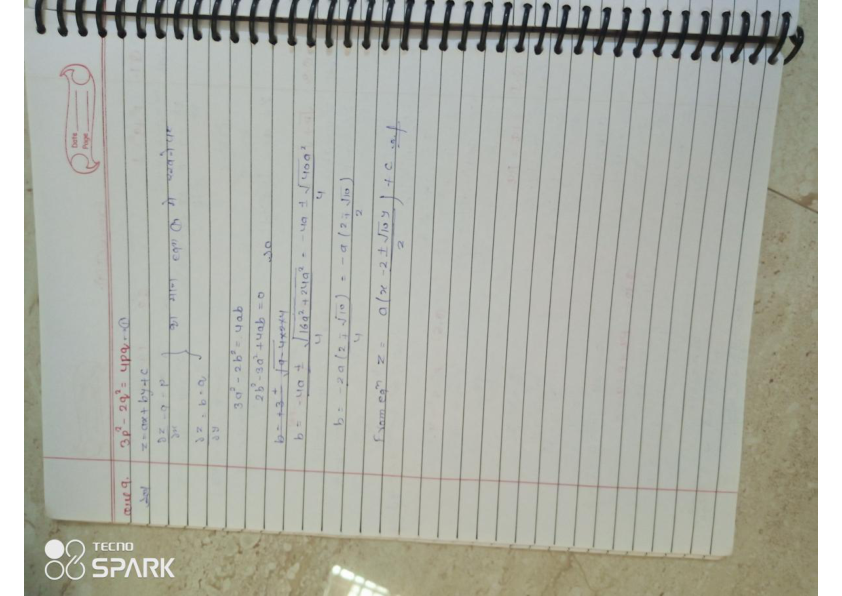 Date
Page
3p² - 2q² = 4pq - ①
z = ax + by + c
∂z/∂x = a = p
∂z/∂y = b = q
का मान eqn ① में
3a² - 2b² = 4ab
2b² - 3a² + 4ab = 0
b = -4a ± √16a² + 24a² / 4 = -4a ± √40a² / 4
b = -2a (2 ± √10) / 4 = -a (2 ± √10) / 2
From eqn z = a(x - 2 ± √10 y / 2) + c
TECNO
SPARK